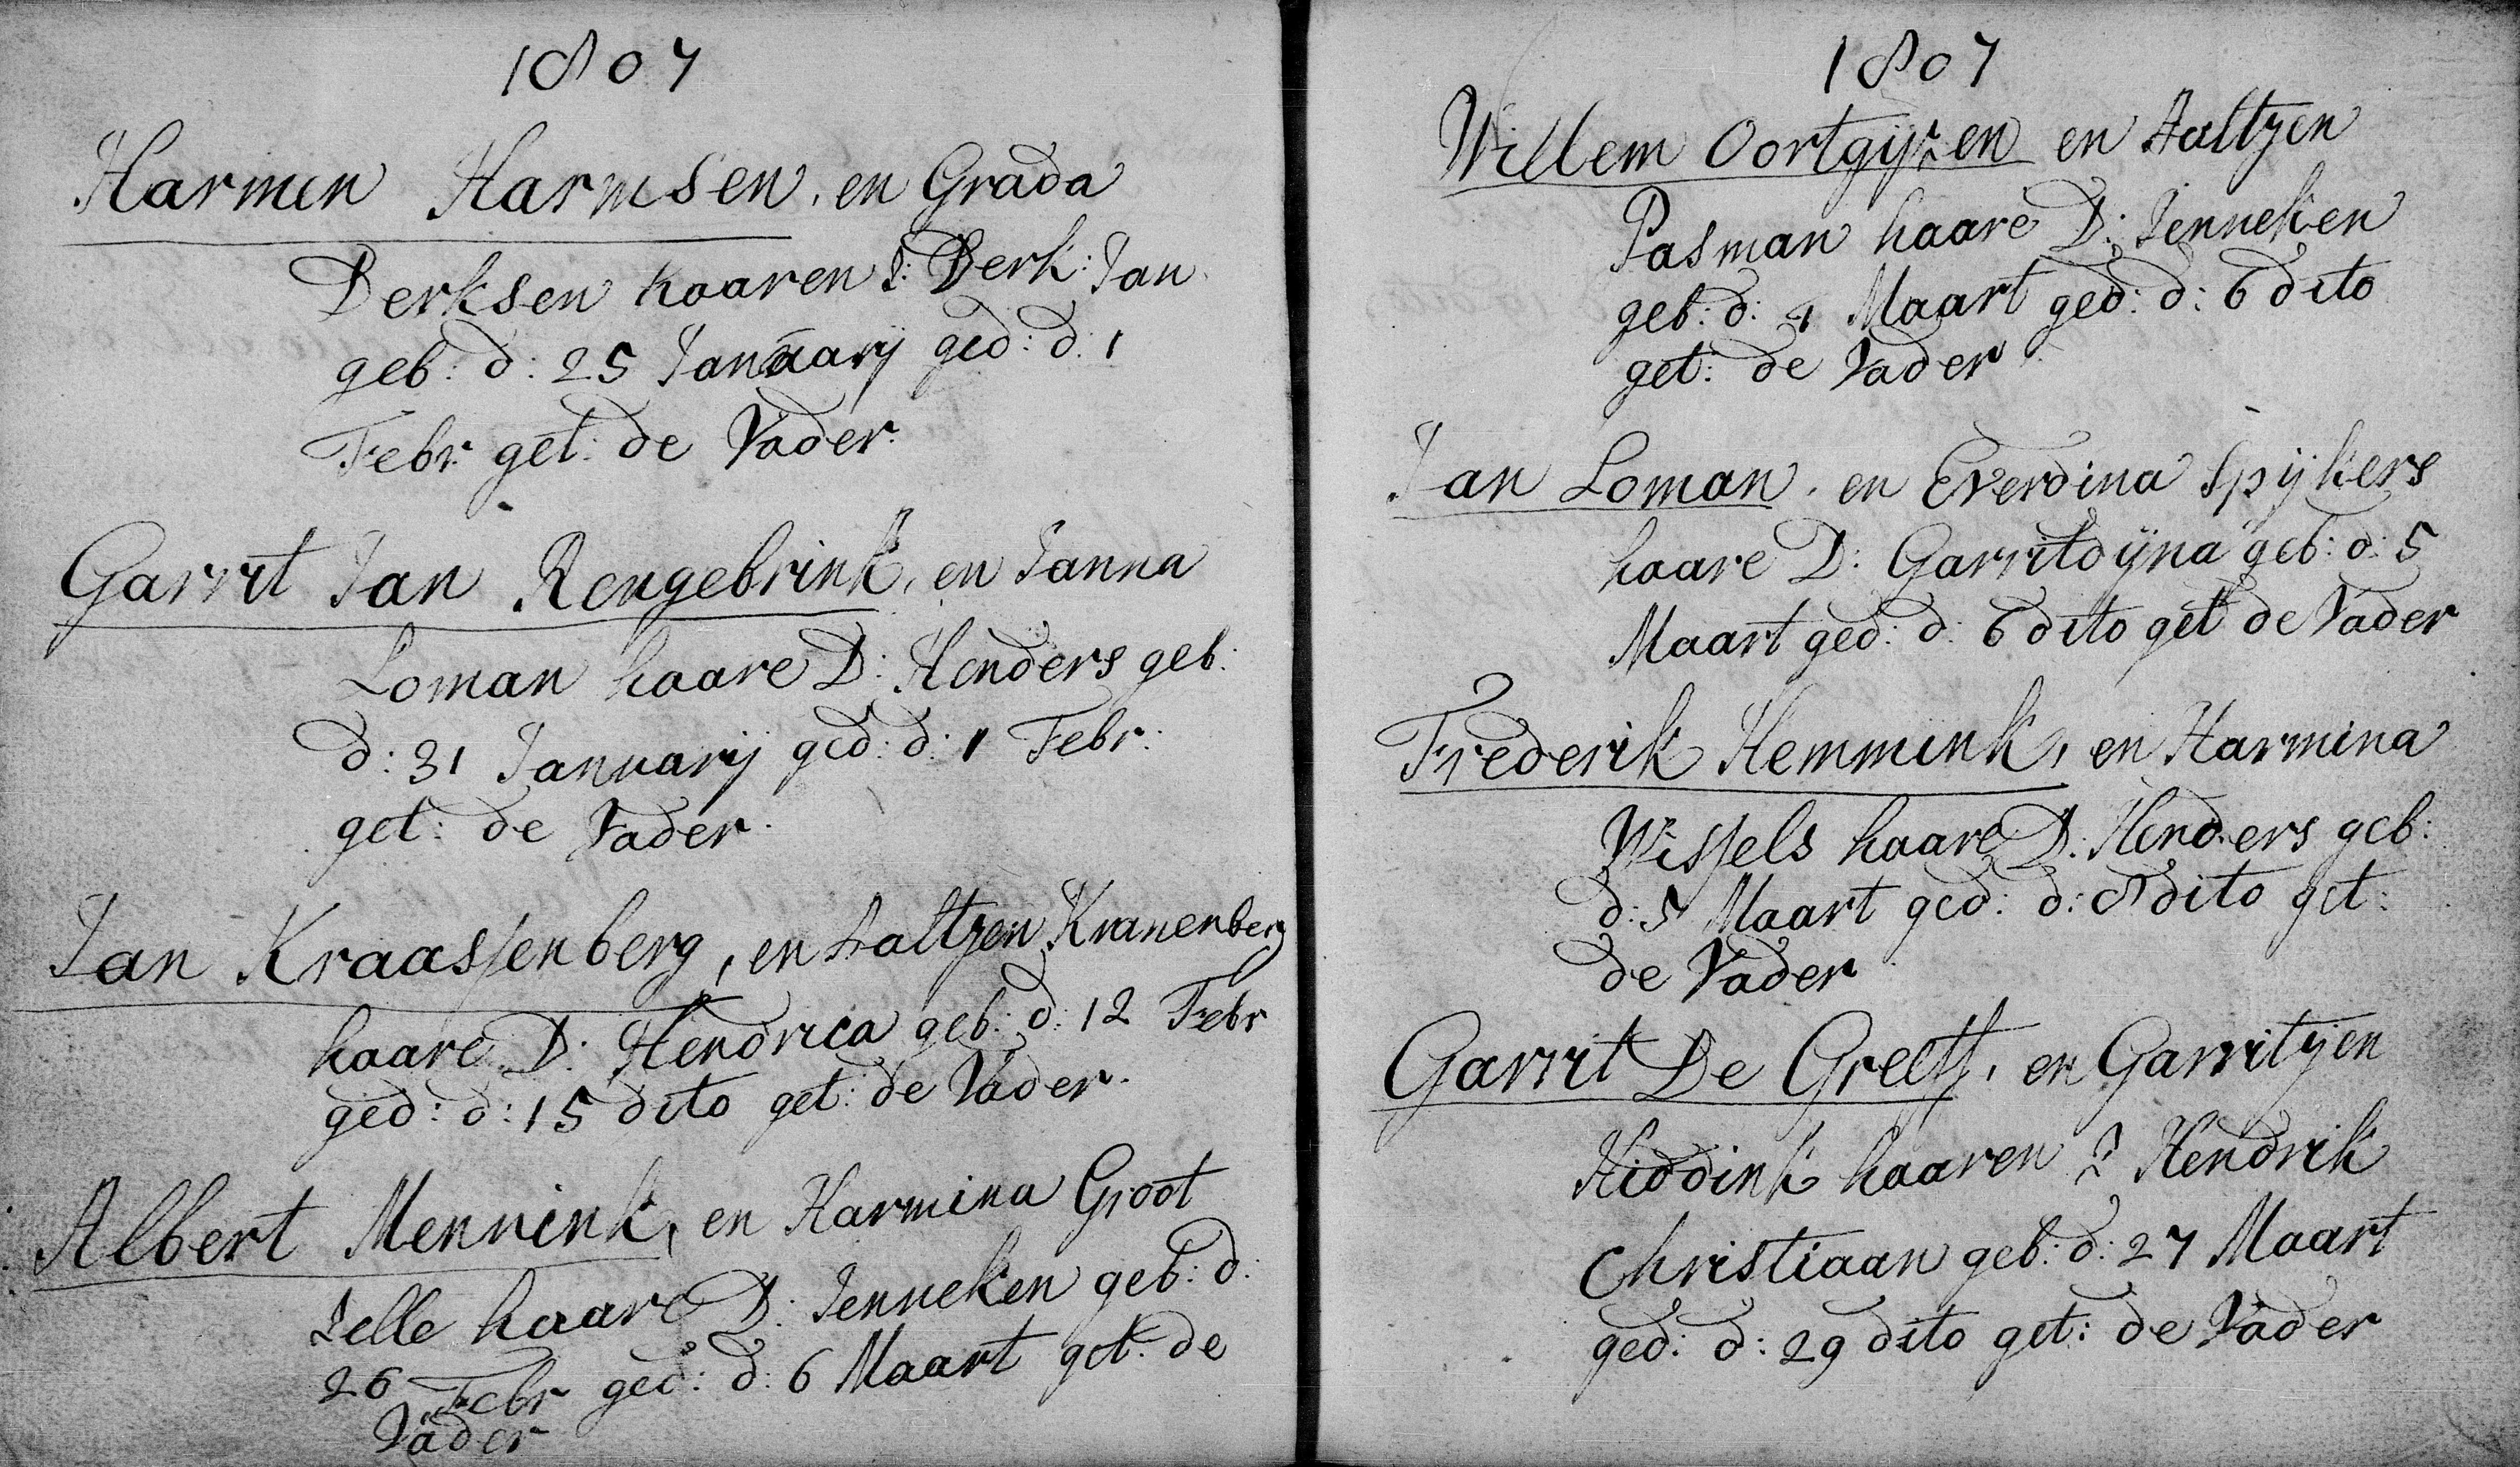 1807
Harmen Harmsen, en Grada
Derksen haaren Z: Derk: Jan
geb: d: 25 Januarij ged: d: 1
Febr get: de Vader.
Garrit Jan Rengebrink, en Janna
Loman haare D: Henders geb:
d: 31 Januarij ged: d: 1 Febr:
get: de Vader.
Jan Kraassenberg, en Aaltjen Kranenberg
haare D: Hendrica geb: d: 12 Febr
ged: d: 15 dito get: de Vader.
Albert Mennink, en Harmina Groot
Zelle haare D: Jenneken geb: d:
26 Febr ged: d: 6 Maart get: de
Vader
1807
Willem Oortgijsen en Aaltjen
Pasman haare D: Jenneken
geb: d: 1 Maart ged: d: 6 dito
get: de Vader
Jan Loman, en Everdina Spijkers
haare D: Garritdijna geb: d: 5
Maart ged: d: 6 dito get de Vader
Frederik Hemmink, en Harmina
Wissels haare D: Henders geb:
d: 5 Maart ged: d: 8 dito get:
de Vader
Garrit De Greeff, en Garritjen
Hiddink haaren Z Hendrik
Christiaan geb: d: 27 Maart
ged: d: 29 dito get: de Vader